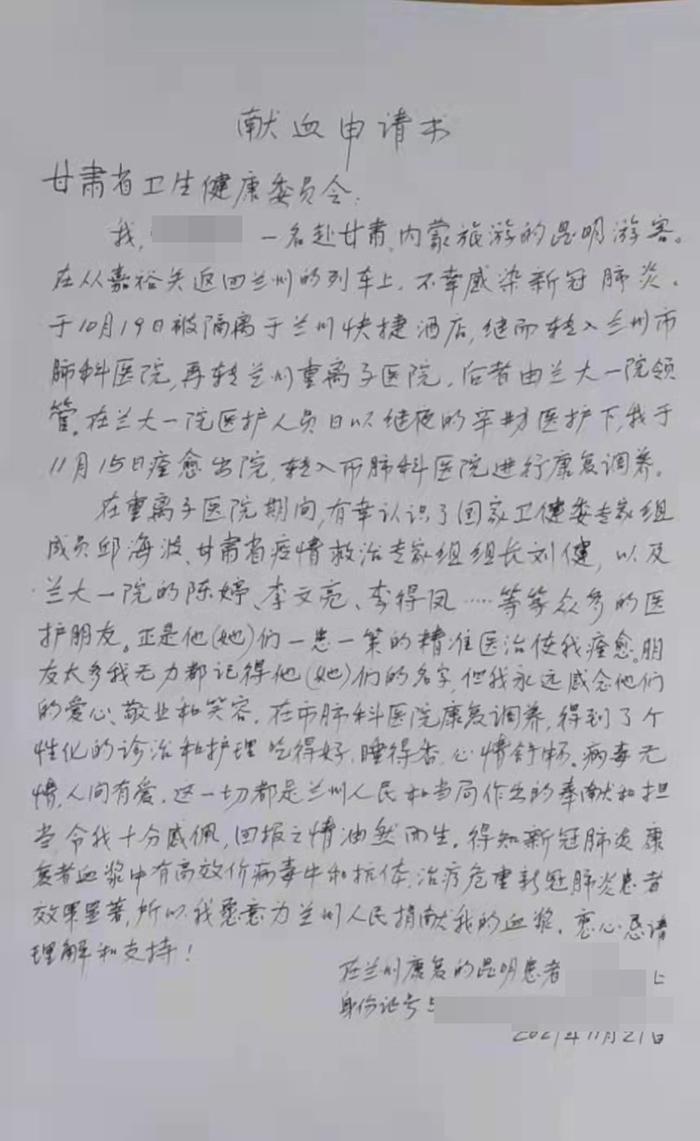 献血申请书
甘肃省卫生健康委员会:
我, 一名赴甘肃,内蒙旅游的昆明游客。
在从嘉裕关返回兰州的列车上,不幸感染新冠肺炎。
于10月19日被隔离于兰州快捷酒店,继而转入兰州市
肺科医院,再转兰州重离子医院,后者由兰大一院领
管。在兰大一院医护人员日以继夜的辛劳医护下,我于
11月15日痊愈出院,转入市肺科医院进行康复调养。
在重离子医院期间,有幸认识了国家卫健委专家组
成员邱海波、甘肃省疫情救治专家组组长刘健,以及
兰大一院的陈婷、李文亮、李得凤……等等众多的医
护朋友。正是他(她)们一患一策的精准医治使我痊愈。朋
友太多我无力都记得他(她)们的名字,但我永远感念他们
的爱心、敬业和笑容。在市肺科医院康复调养,得到了个
性化的诊治和护理,吃得好,睡得香,心情舒畅。病毒无
情,人间有爱。这一切都是兰州人民和当局作出的奉献和担
当,令我十分感佩,回报之情油然而生。得知新冠肺炎康
复者血浆中有高效价病毒中和抗体,治疗危重新冠肺炎患者
效果显著,所以,我愿意为兰州人民捐献我的血浆。衷心恳请
理解和支持!
在兰州康复的昆明患者
身份证号
2021年11月21日